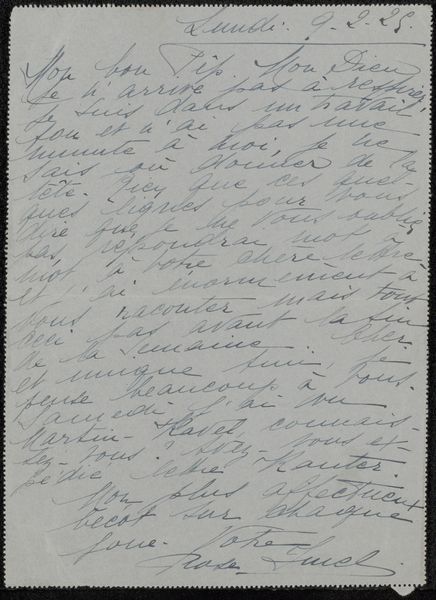 Lundi. 9-2-25.
Mon bon Pip. Mon Dieu
je n'arrive pas à respirer,
je suis dans un travail
fou et n'ai pas une
minute à moi, je ne
sais où donner de la
tête. Rien que ces quel-
ques lignes pour vous
dire que je ne vous oublie
pas, répondrai mot à
mot à votre chère lettre
et j'ai énormément à
vous raconter mais tout
ceci pas avant la fin
de la semaine. Cher
et unique ami, je
pense beaucoup à vous.
Samedi j'ai vu
Martin-Havet, connais-
sez-vous? Avez-vous ex-
pédié lettre Kanter.
Mon plus affectueux
bécot sur chaque
joue. Votre
Rose